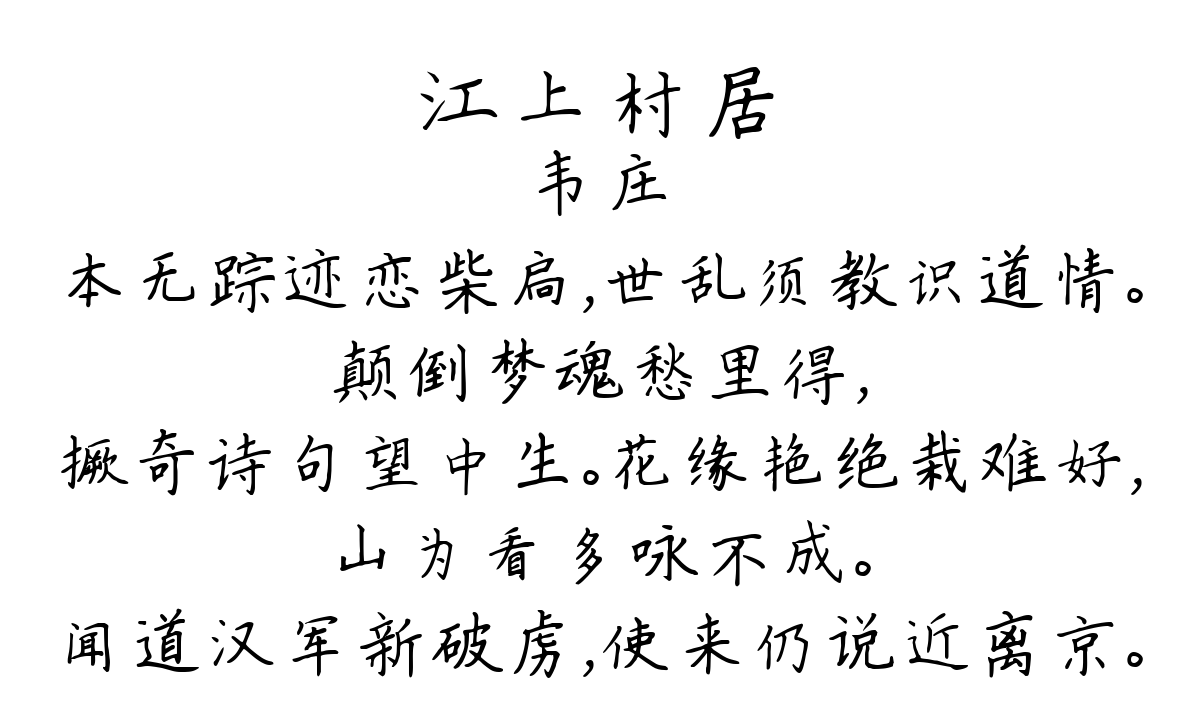 江上村居
韦庄
本无踪迹恋柴扃,世乱须教识道情。
颠倒梦魂愁里得,
撅奇诗句望中生。花缘艳绝栽难好,
山为看多咏不成。
闻道汉军新破虏,使来仍说近离京。